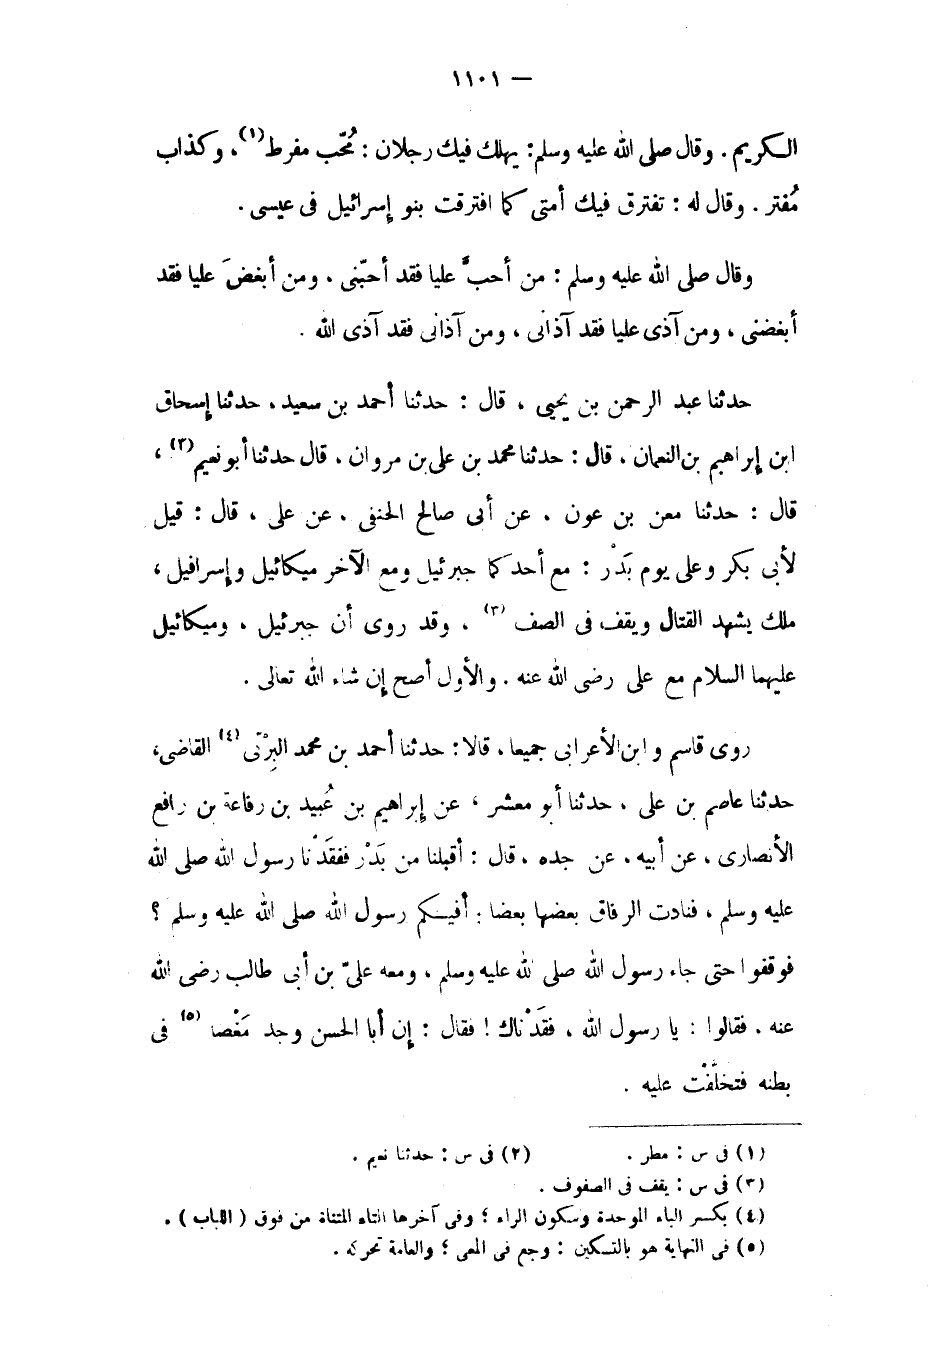 — ١١٠١
الكريم . وقال صلى الله عليه وسلم: يهلك فيك رجلان : مُحّب مفرط(١)، وكذاب
مُفتر . وقال له : تفترق فيك أمتى كما افترقت بنو إسرائيل فى عيسى .
وقال صلى الله عليه وسلم : من أحبَّ عليا فقد أحبّنى ، ومن أبغضَ عليا فقد
أبغضنى ، ومن آذى عليا فقد آذانى ، ومن آذانى فقد آذى الله .
حدثنا عبد الرحمن بن يحيى ، قال : حدثنا أحمد بن سعيد، حدثنا إسحاق
ابن إبراهيم بن النعمان ، قال : حدثنا محمد بن على بن مروان ، قال حدثنا أبو نعيم(٢) ،
قال : حدثنا معن بن عون ، عن أبى صالح الحنفى ، عن على ، قال : قيل
لأبى بكر وعلى يوم بَدْر : مع أحدكما جبرئيل ومع الآخر ميكائيل وإسرافيل ،
ملك يشهد القتال ويقف فى الصف (٣) ، وقد روى أن جبرئيل ، وميكائيل
عليهما السلام مع على رضى الله عنه . والأول أصح إن شاء الله تعالى .
روى قاسم وابن الأعرابى جميعا، قالا: حدثنا أحمد بن محمد البِرْتى(٤) القاضى،
حدثنا عاصم بن على ، حدثنا أبو معشر ، عن إبراهيم بن عُبيد بن رفاعة بن رافع
الأنصارى ، عن أبيه، عن جده ، قال : أقبلنا من بَدْر ففقَدْنا رسول الله صلى الله
عليه وسلم ، فنادت الرفاق بعضها بعضا : أفيكم رسول الله صلى الله عليه وسلم ؟
فوقفوا حتى جاء رسول الله صلى لله عليه وسلم ، ومعه علىّ بن أبى طالب رضى الله
عنه . فقالوا : يا رسول الله ، فقَدْناك ! فقال : إن أبا الحسن وجد مَغْصا (٥) فى
بطنه فتخلَّفْت عليه .
(١) فى س : مطر . (٢) فى س : حدثنا نعيم .
(٣) فى س : يقف فى الصفوف .
(٤) بكسر الباء الموحدة وسكون الراء ؛ وفى آخرها التاء المثناة من فوق ( اللباب ) .
(٥) فى النهاية هو بالتسكين : وجع فى المعى ؛ والعامة تحركه .